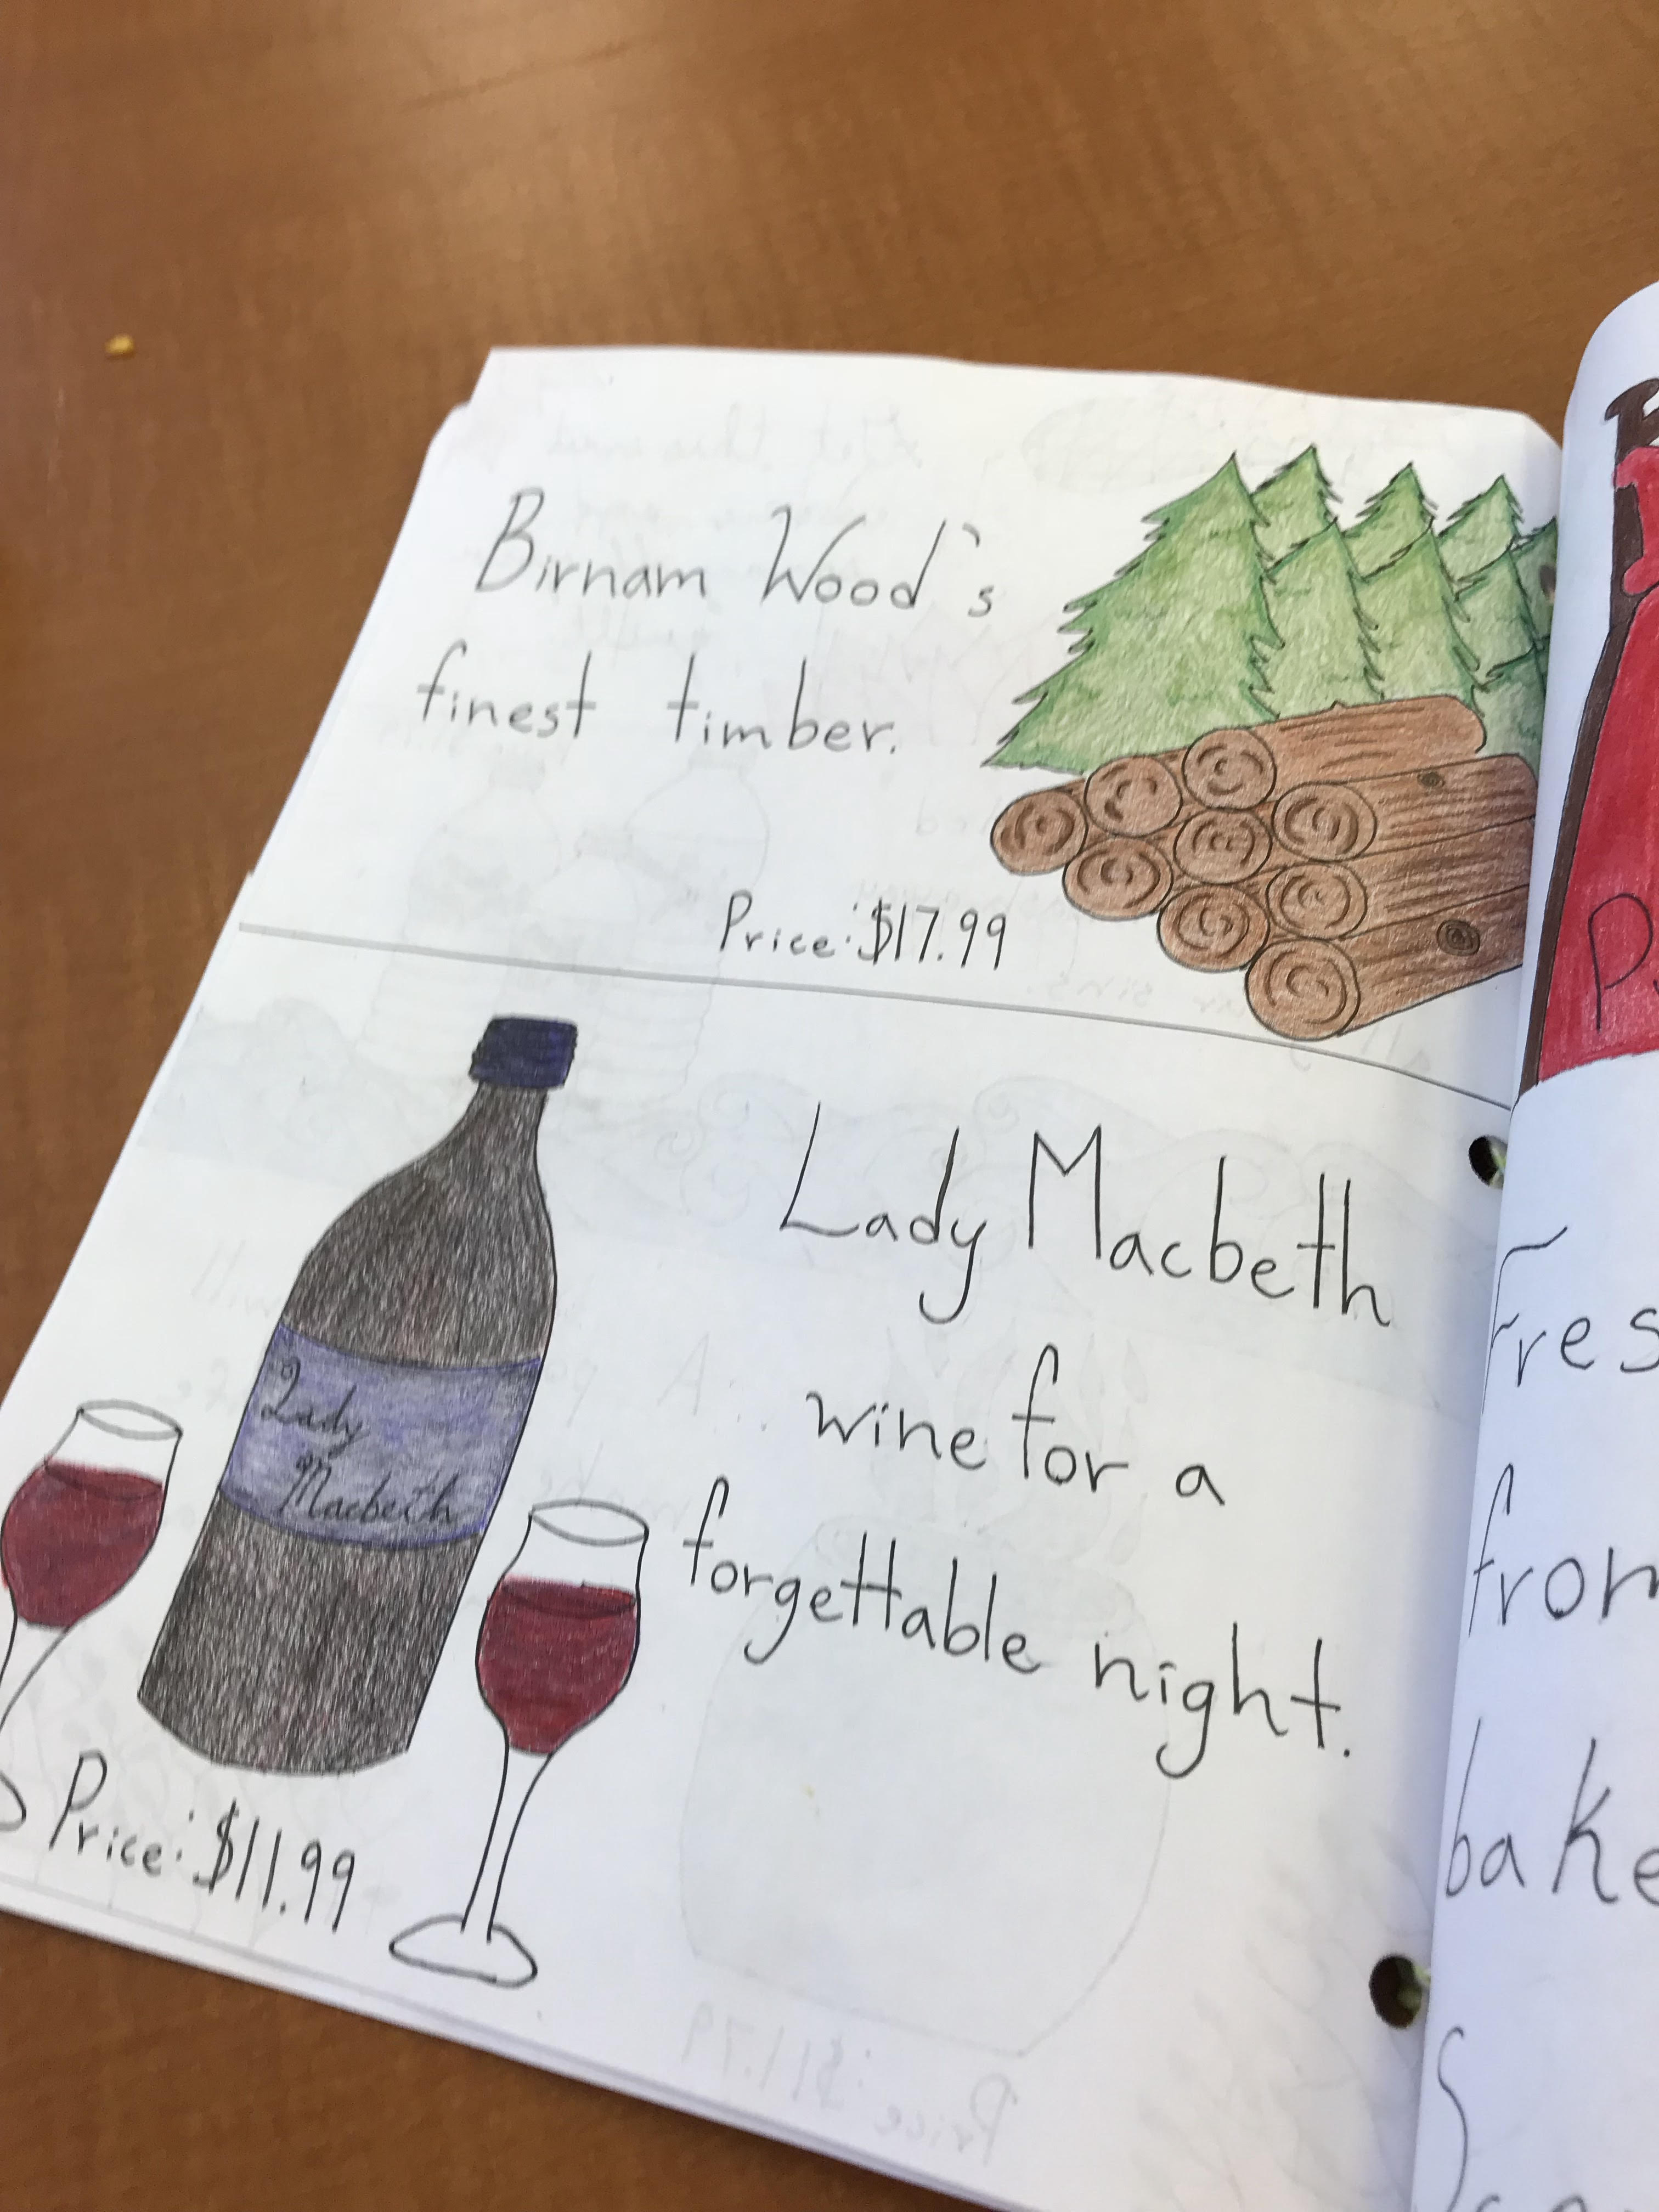 Birnam Wood's
finest timber.
Price: $17.99
Lady Macbeth
wine for a
forgettable night.
Lady
Macbeth
Price: $11.99
from
bake
Price: $11.79